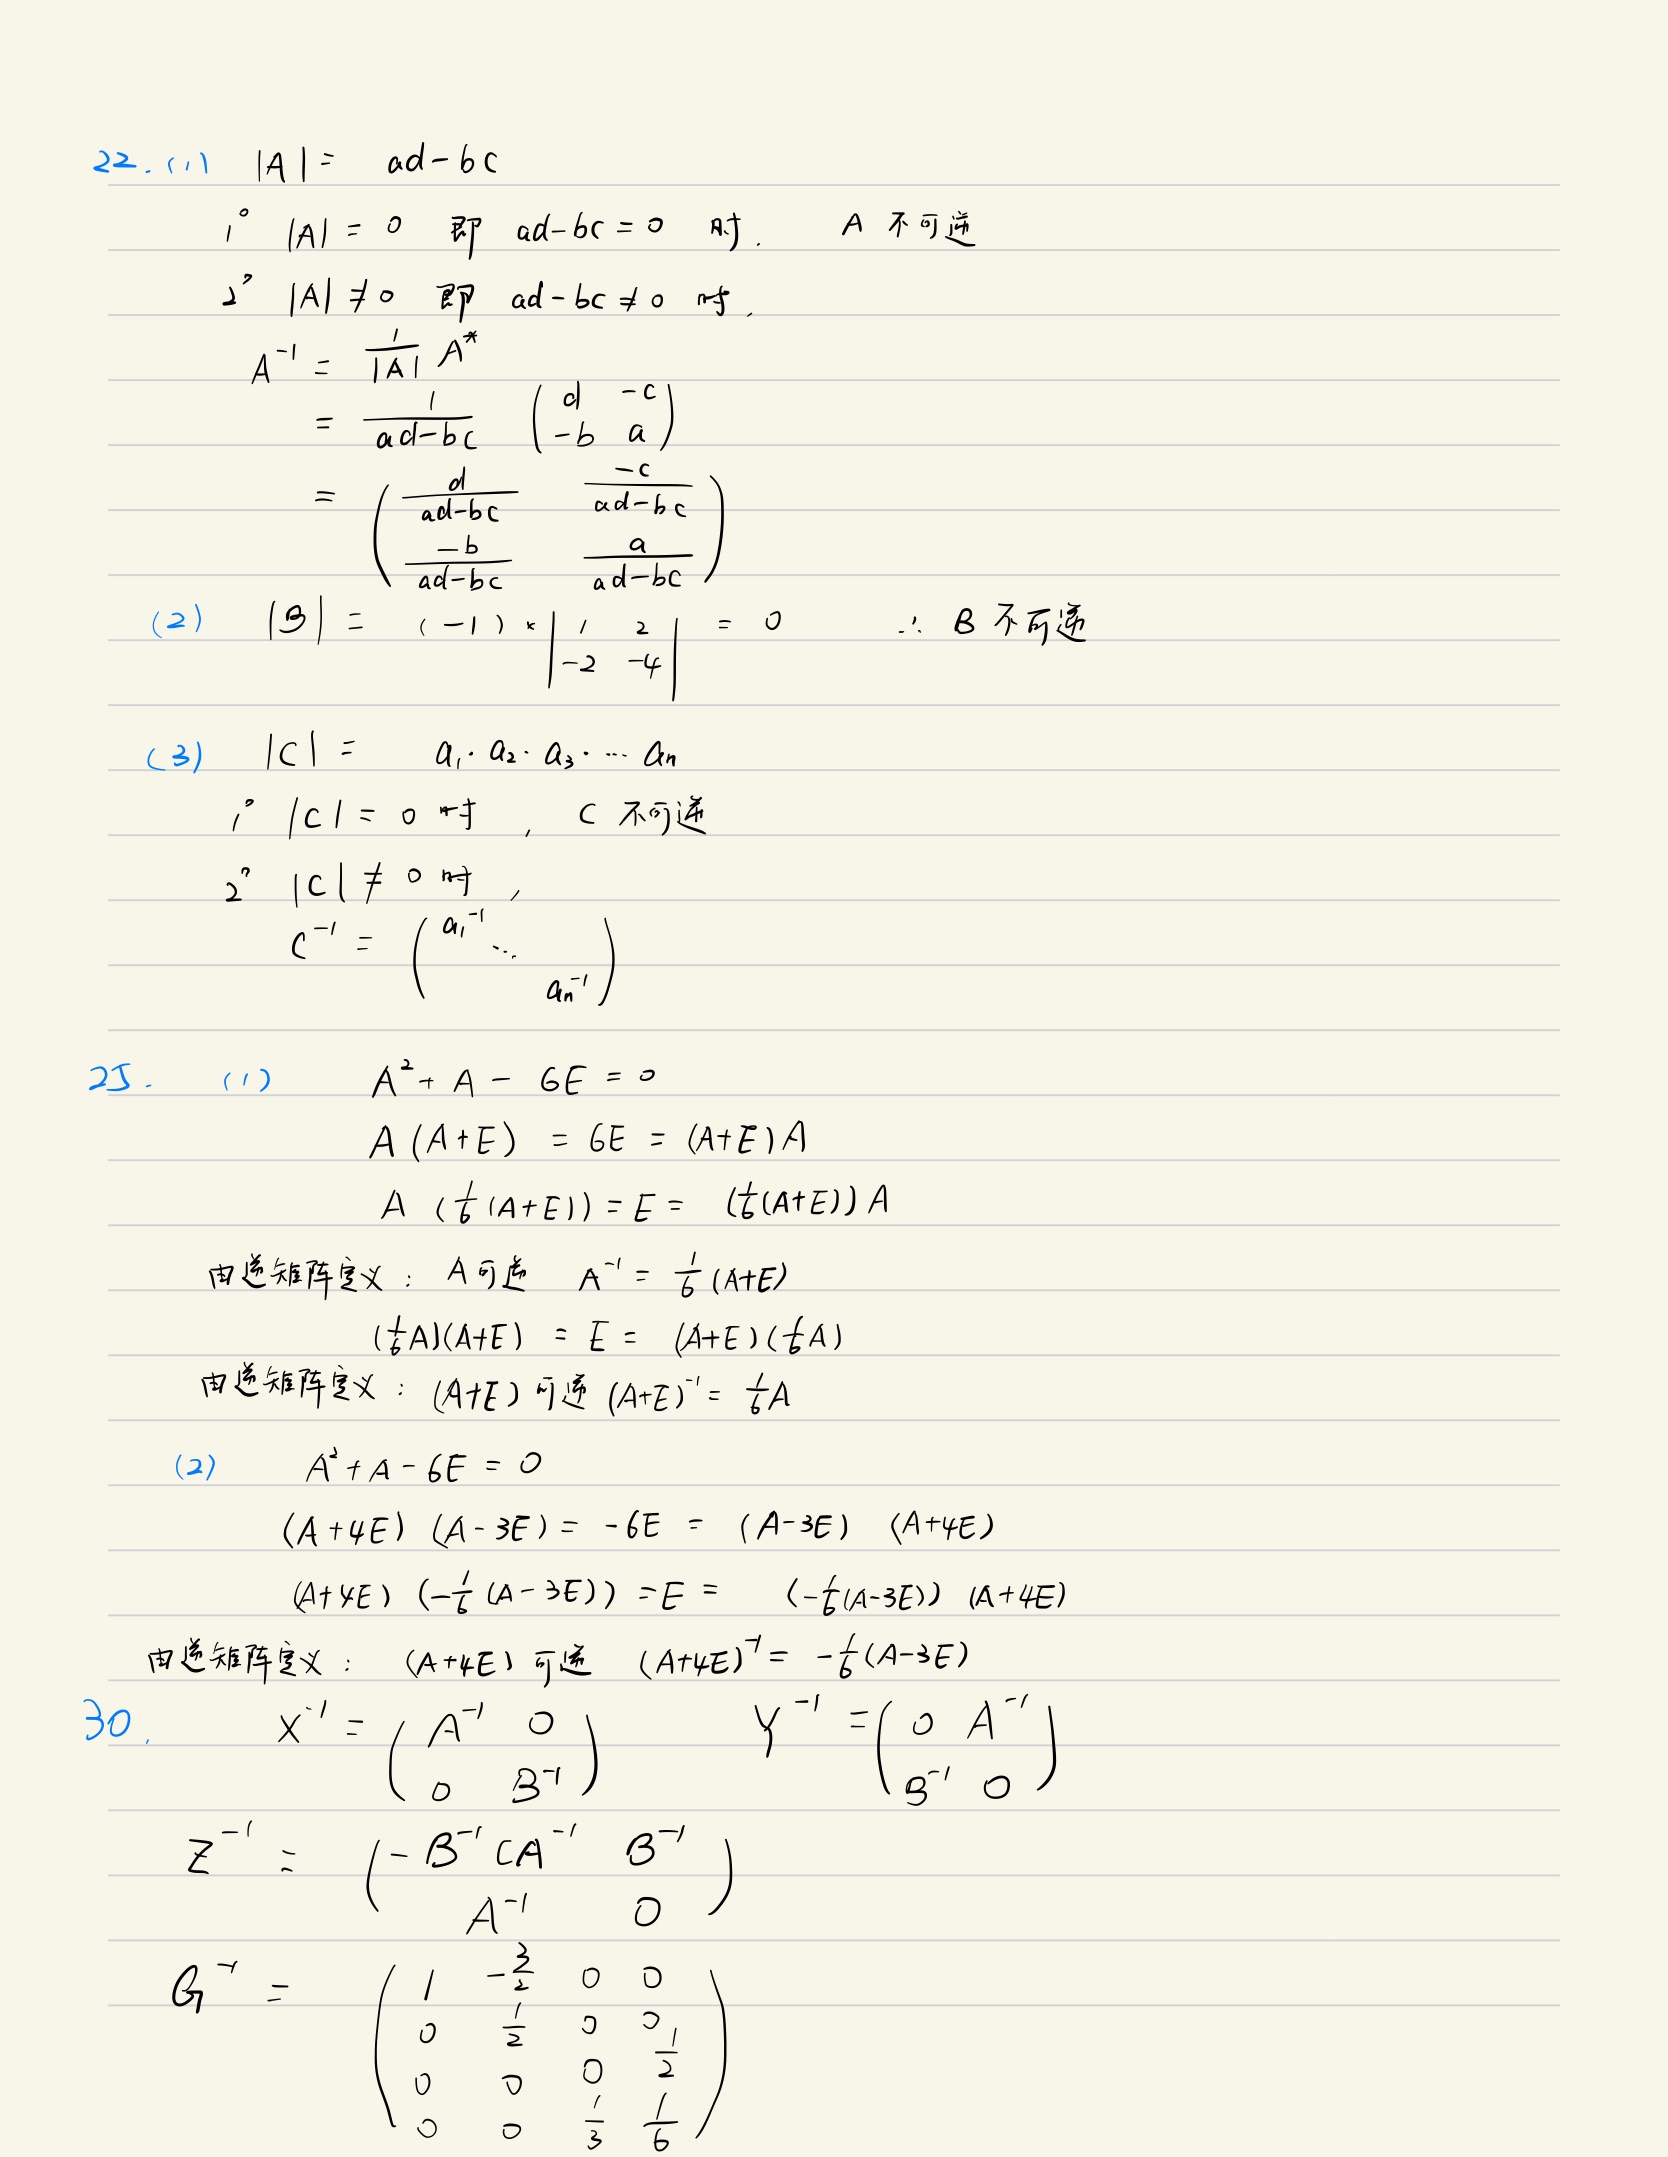 22. (1) |A| = ad-bc
1° |A| = 0 即 ad-bc = 0 时. A 不可逆
2° |A| ≠ 0 即 ad-bc ≠ 0 时,
A⁻¹ = 1/|A| A*
= 1/(ad-bc) (d -c; -b a)
= (d/(ad-bc) -c/(ad-bc); -b/(ad-bc) a/(ad-bc))
(2) |B| = (-1) × |1 2; -2 -4| = 0 ∴ B 不可逆
(3) |C| = a₁· a₂· a₃· ··· aₙ
1° |C| = 0 时, C 不可逆
2° |C| ≠ 0 时,
C⁻¹ = (a₁⁻¹ ⋱ aₙ⁻¹)
25. (1) A² + A - 6E = 0
A (A+E) = 6E = (A+E) A
A (1/6 (A+E)) = E = (1/6(A+E)) A
由逆矩阵定义: A可逆 A⁻¹ = 1/6 (A+E)
(1/6 A)(A+E) = E = (A+E)(1/6 A)
由逆矩阵定义: (A+E) 可逆 (A+E)⁻¹ = 1/6 A
(2) A² + A - 6E = 0
(A+4E) (A-3E) = -6E = (A-3E) (A+4E)
(A+4E) (-1/6 (A-3E)) = E = (-1/6(A-3E)) (A+4E)
由逆矩阵定义: (A+4E) 可逆 (A+4E)⁻¹ = -1/6 (A-3E)
30. X⁻¹ = (A⁻¹ 0; 0 B⁻¹) Y⁻¹ = (0 A⁻¹; B⁻¹ 0)
Z⁻¹ = (-B⁻¹CA⁻¹ B⁻¹; A⁻¹ 0)
G⁻¹ = (1 -3/2 0 0; 0 1/2 0 0; 0 0 0 1/2; 0 0 1/3 1/6)